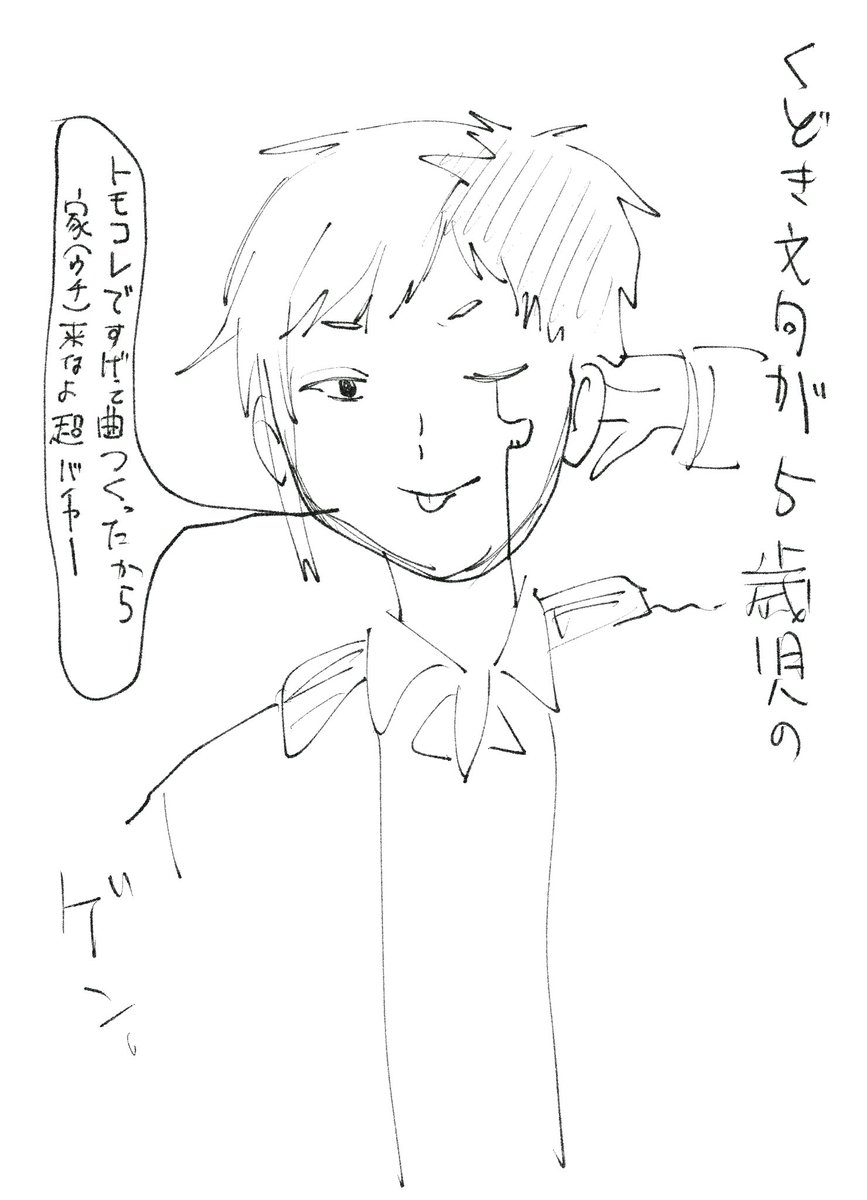 くどき文句が5歳児の
トモコレですげェ曲つくったから
家(ウチ)来なよ超バイヤー
ゲン。